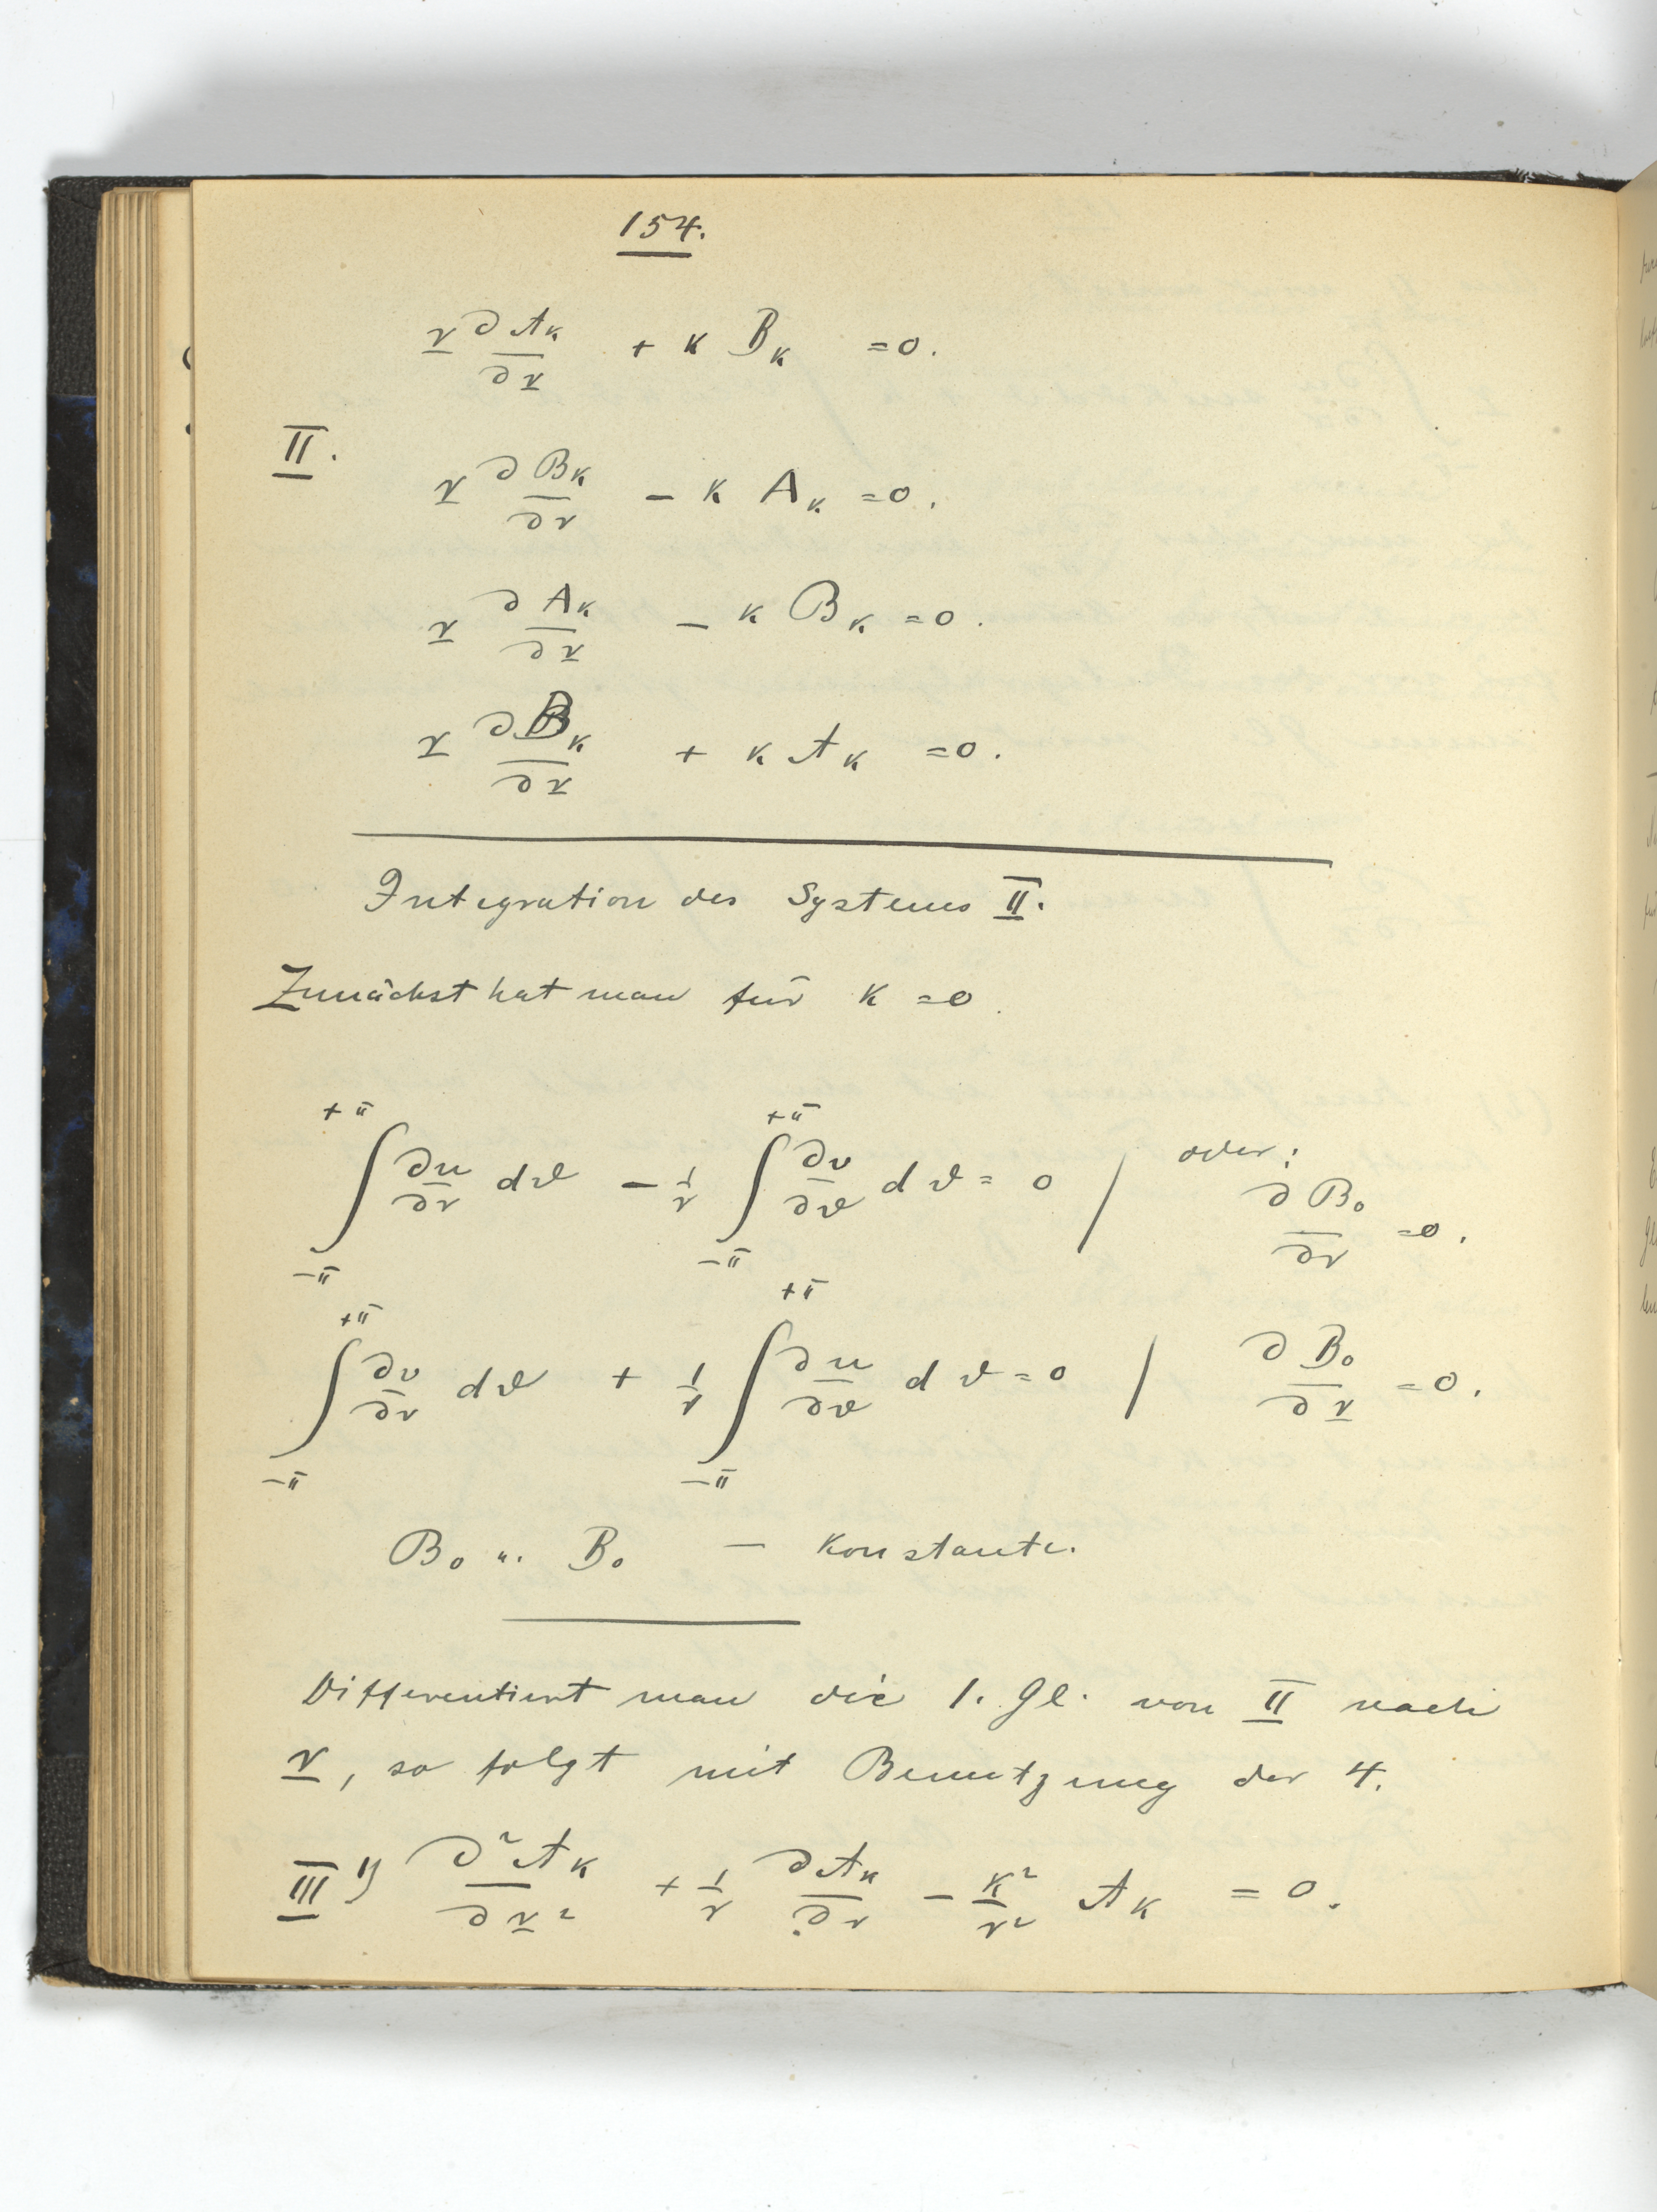 154.
r ∂𝒜ₖ/∂r + k Bₖ = 0.
II. r ∂ℬₖ/∂r − k Aₖ = 0.
r ∂Aₖ/∂r − k ℬₖ = 0.
r ∂Bₖ/∂r + k 𝒜ₖ = 0.
Integration des Systems II.
Zunächst hat man für k = 0.
∫₋π^+π ∂u/∂r dϑ − 1/r ∫₋π^+π ∂v/∂ϑ dϑ = 0 / oder: ∂ℬ₀/∂r = 0.
∫₋π^+π ∂v/∂r dϑ + 1/r ∫₋π^+π ∂u/∂ϑ dϑ = 0 / ∂B₀/∂r = 0.
ℬ₀ u. B₀ — Konstante.
Differentiert man die 1. Gl. von II nach
r, so folgt mit Benutzung der 4.
III 1) ∂²𝒜ₖ/∂r² + 1/r ∂𝒜ₖ/∂r − k²/r² 𝒜ₖ = 0.